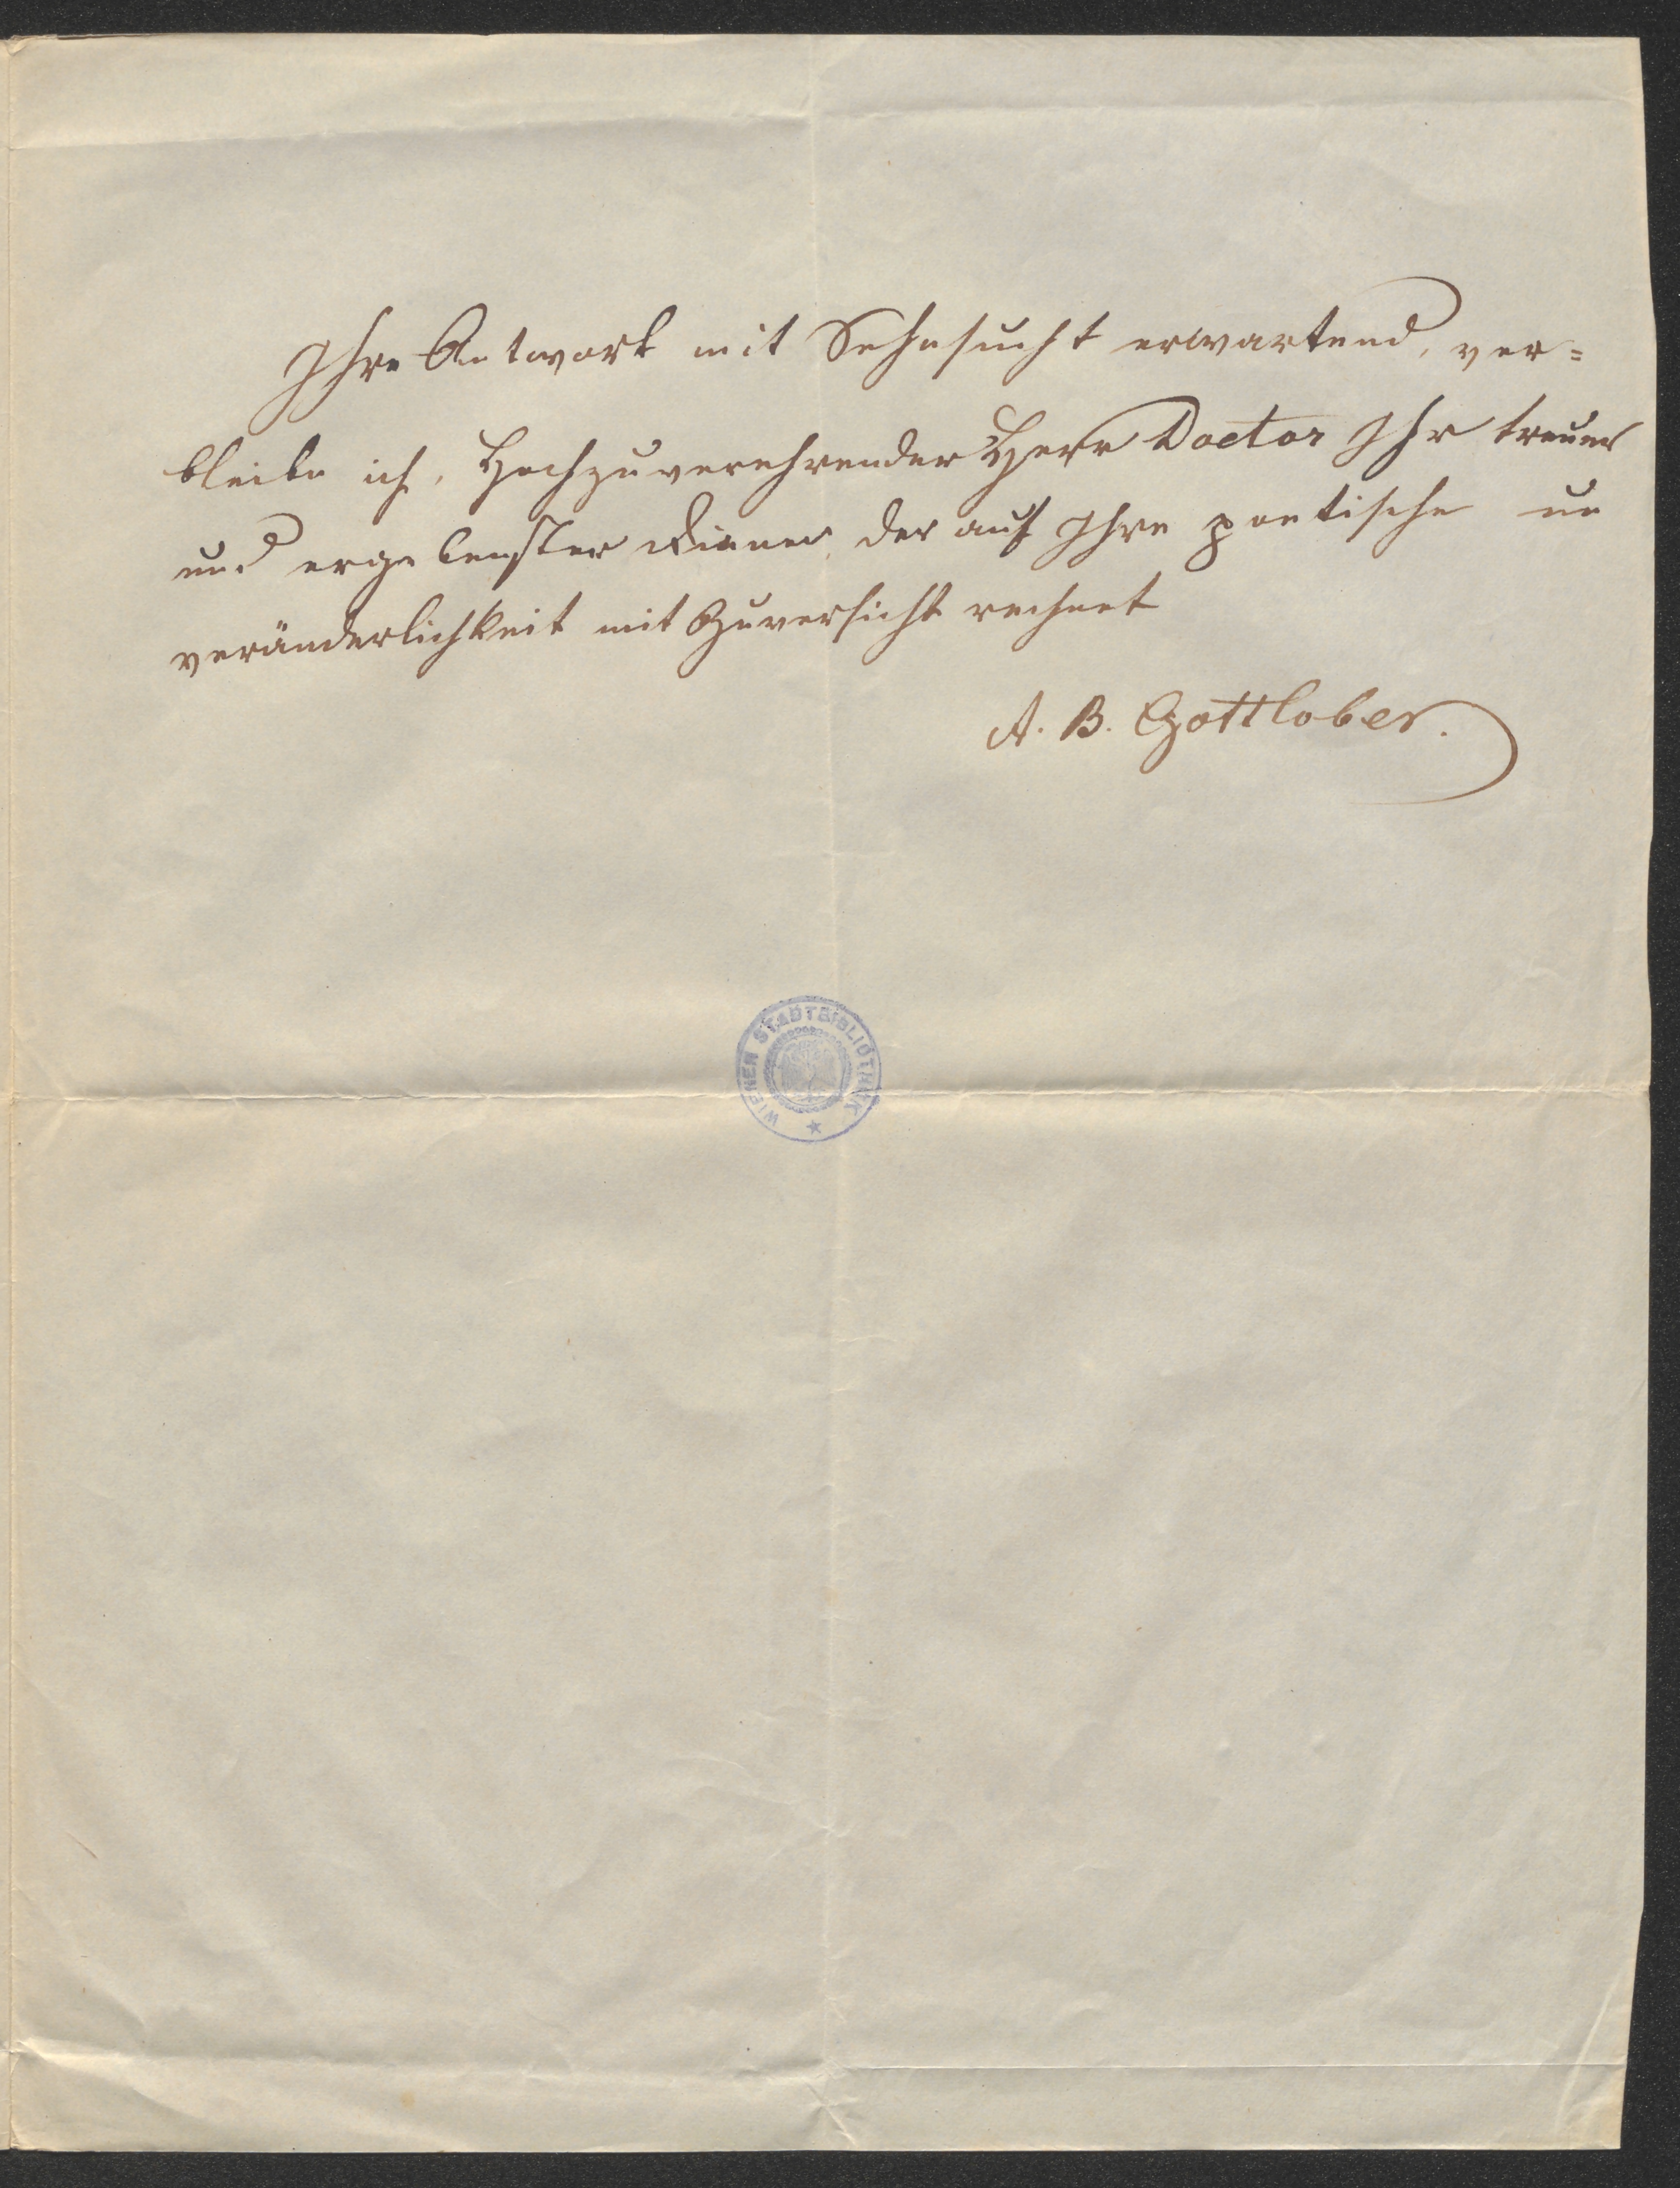 Ihre Antwort mit Sehnsucht erwartend, ver=
bleibe ich, Hochzuverehrender Herr Doctor Ihr treuer
und ergebenster Diener, der auf Ihre poetische un
veränderlichkeit mit Zuversicht rechnet
A. B. Gottlober.
WIENER STADTBIBLIOTHEK